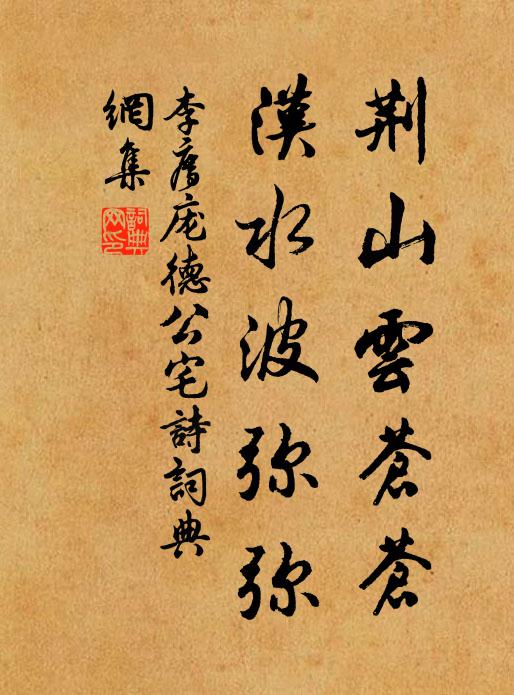 荆山雲蒼蒼
漢水波弥弥
李廌庞德公宅詩詞典
網集
詞典
网印